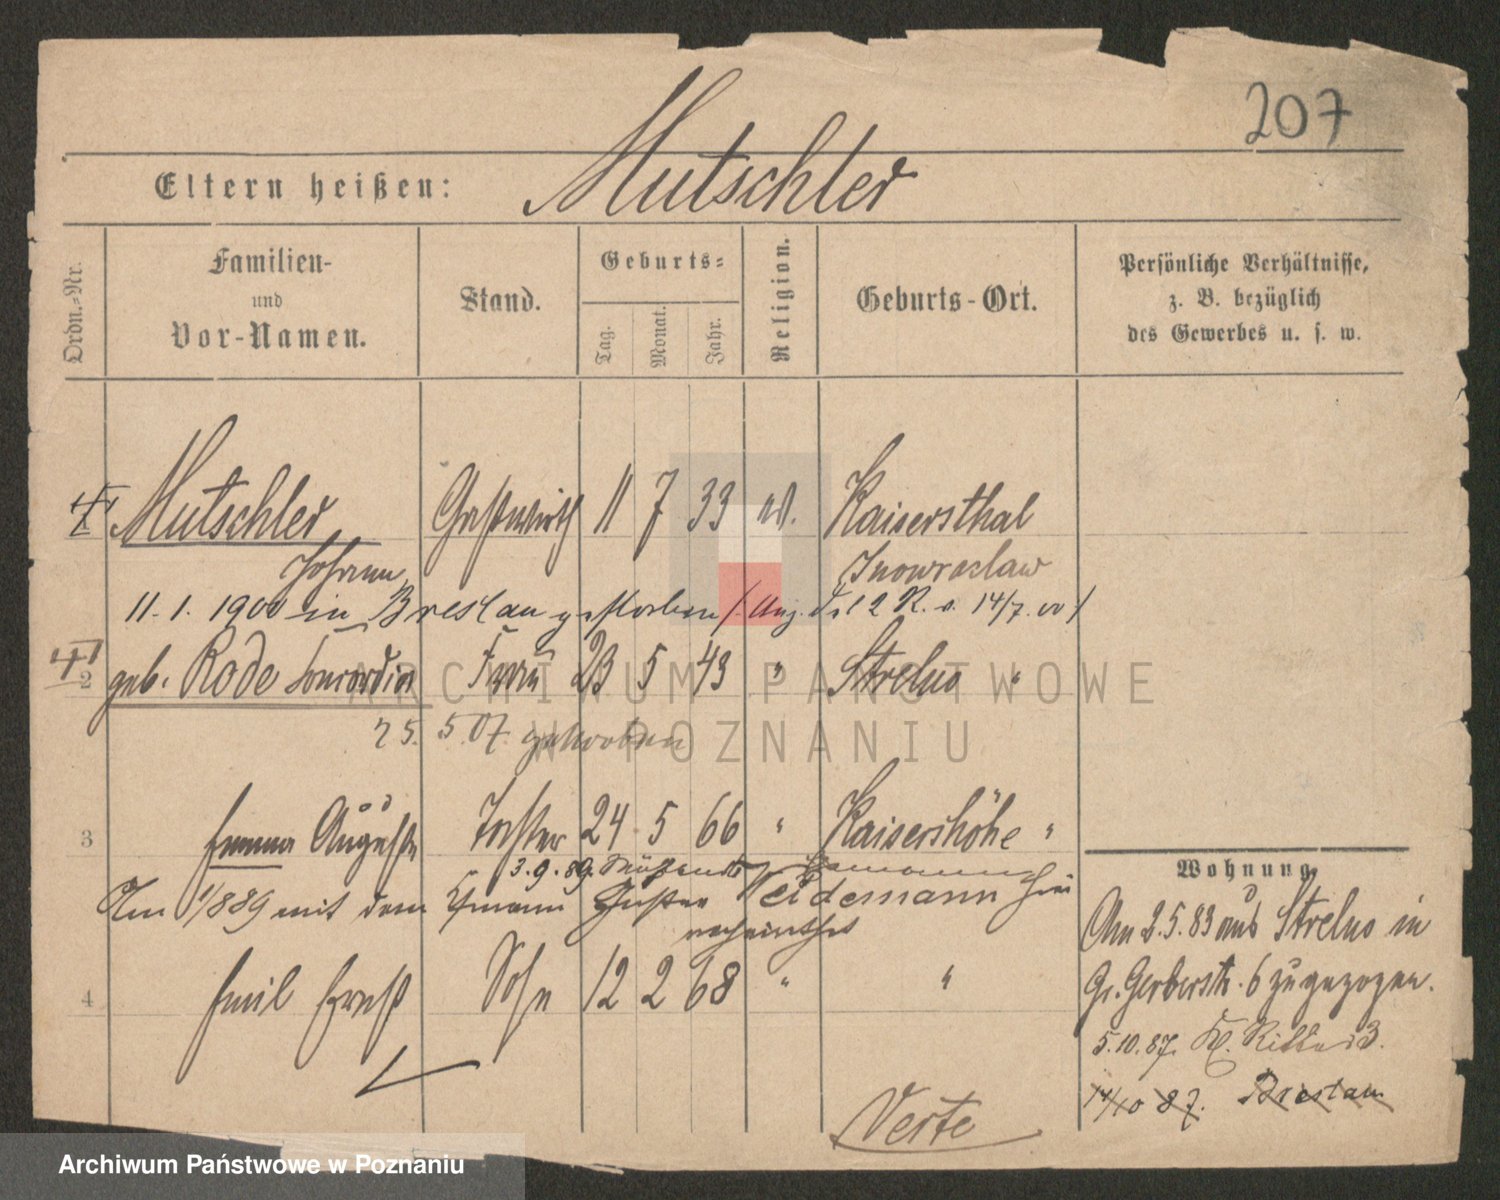 207
Eltern heißen: Mutschler
Ordn.-Nr.
Familien-
und
Vor-Namen.
Stand.
Geburts-
Tag.
Monat.
Jahr.
Religion.
Geburts-Ort.
Persönliche Verhältnisse,
z. B. bezüglich
des Gewerbes u. s. w.
Mutschler Gastwirth 11 7 33 ev. Kaisersthal
Johann Inowrazlaw
11. 1. 1900 in Breslau gestorben /: Anz. d. 2 R. v. 14/7. 00 :/
2 geb. Rode Concordia Frau 23 5 43 " Strelno "
25. 5. 07 gestorben
3 Emma Auguste Tochter 24 5 66 " Kaisershöhe "
3. 9. 89.
Am 1/889 mit dem Ehmann Gustav Weidemann hier
verheirathet
4 Emil Ernst Sohn 12 2 68 " "
Wohnung
Am 2. 5. 83 aus Strelno in
Gr. Gerberstr. 6 zugezogen.
5. 10. 87. Kl. Ritter 3.
14/10 87. Breslau
Verte
ARCHIWUM PAŃSTWOWE
W POZNANIU
Archiwum Państwowe w Poznaniu